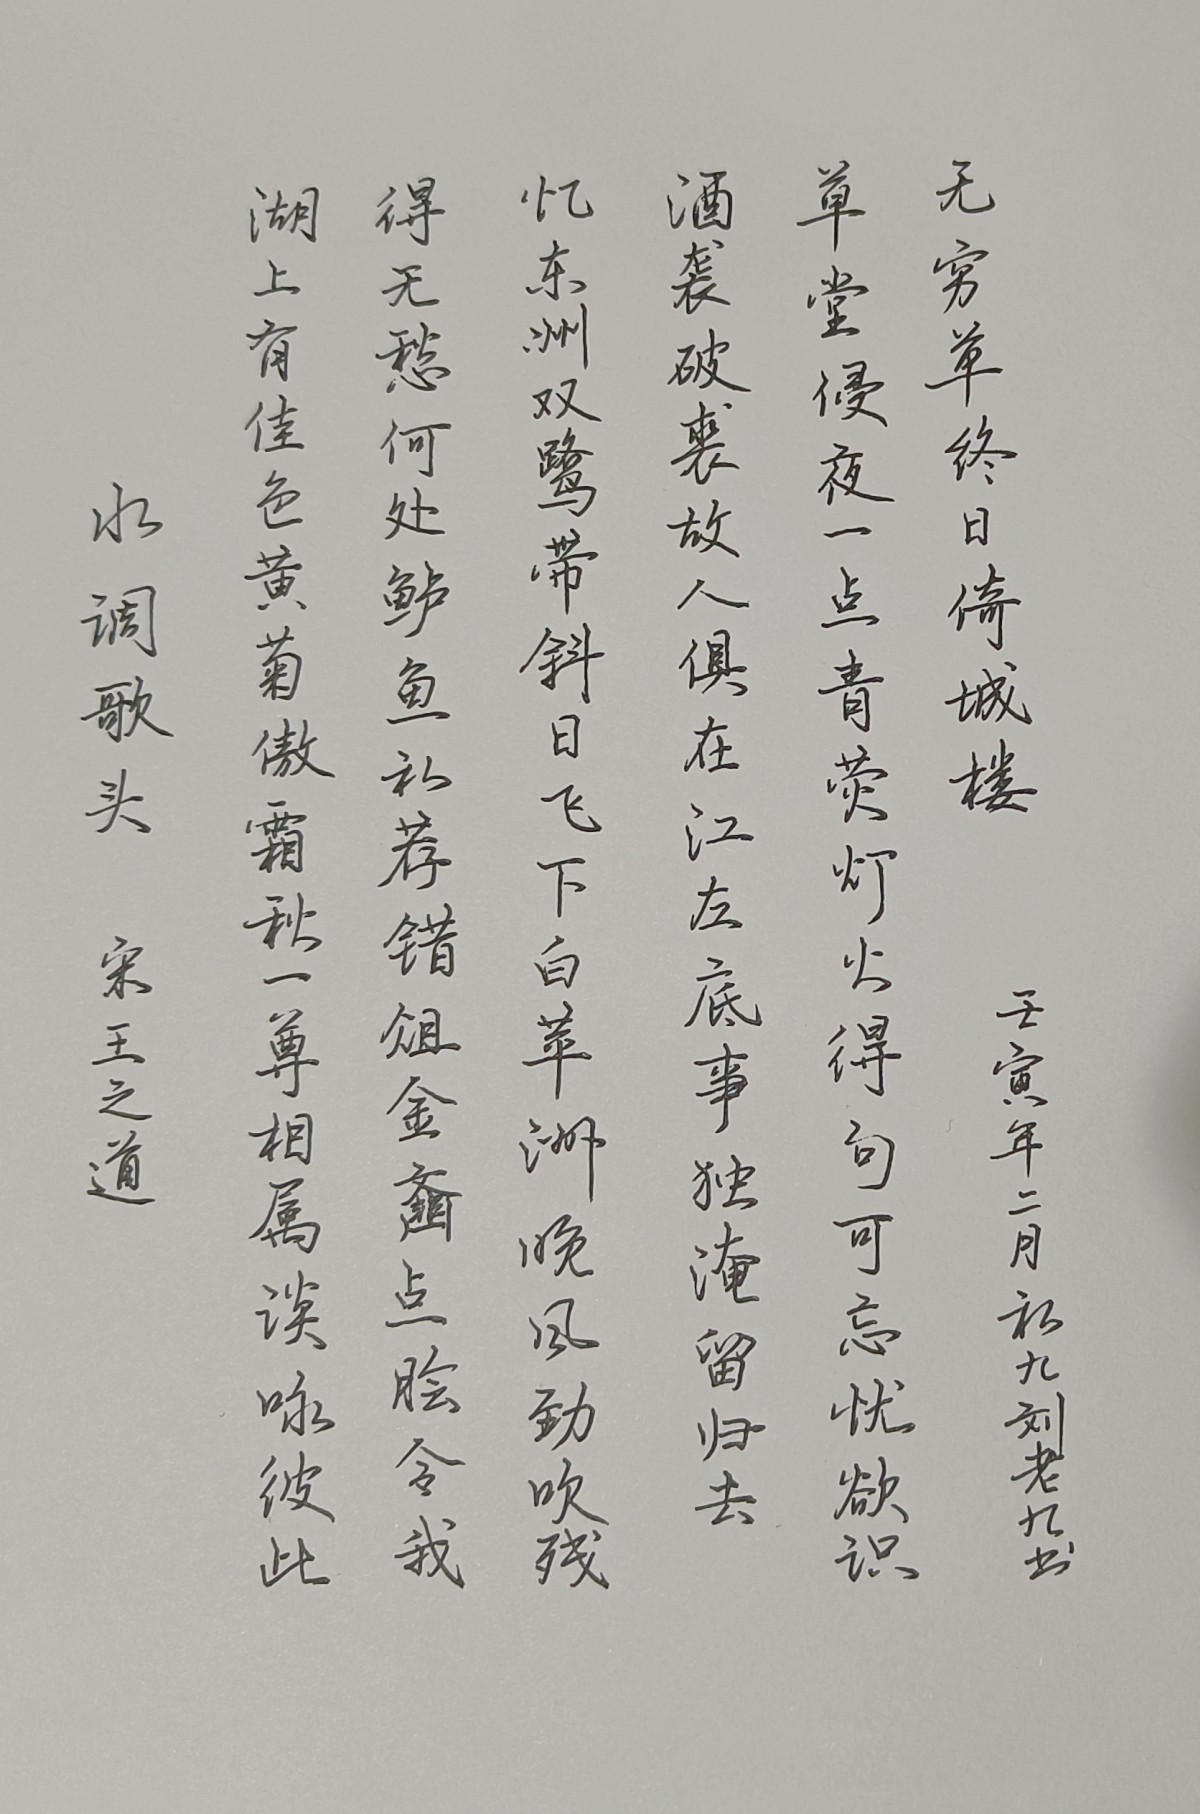 水调歌头 宋王之道
湖上有佳色黄菊傲霜秋一尊相属谈咏彼此
得无愁何处鲈鱼初荐错俎金齑点脍令我
忆东洲双鹭带斜日飞下白苹洲晚风劲吹残
酒袭破裘故人俱在江左底事独淹留归去
草堂侵夜一点青荧灯火得句可忘忧欲识
无穷草终日倚城楼
壬寅年二月初九刘老九书